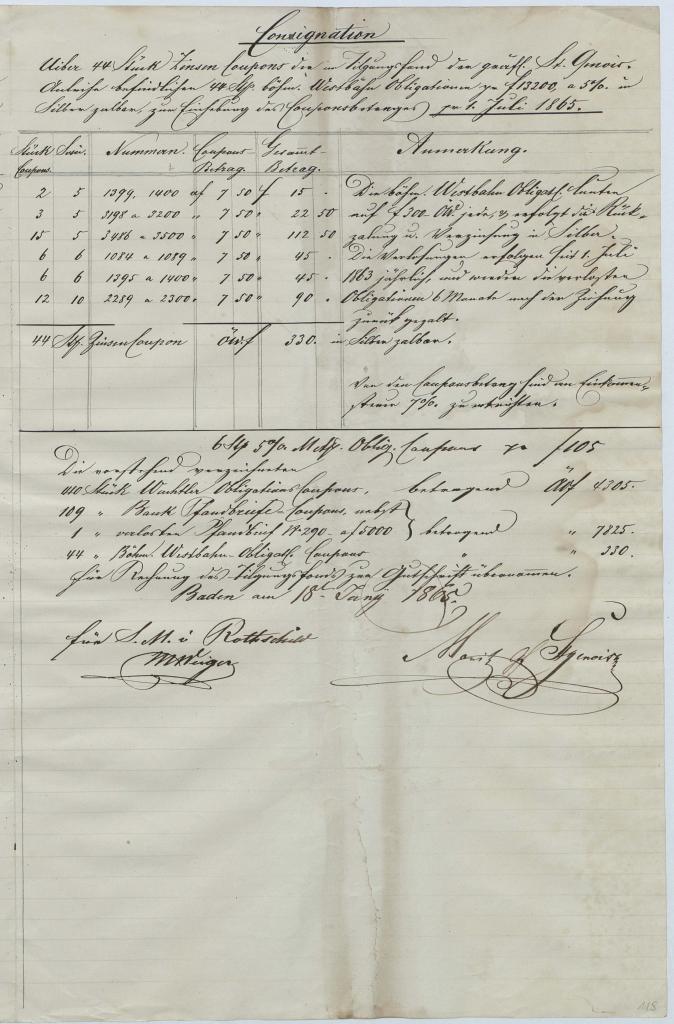 Consignation
Uiber 44 Stück Zinsen Coupons der im Tilgungsfond der gräfl. St. Genois.
Anleihe befindlichen 44 Stk böhm. Westbahn Obligationen pr f 13200, a 5%. in
Silber zalbar, zur Einhebung des Couponsbetrages pr 1. Juli 1865.
Stück Coupons. Serie. Nummern. Coupons-Betrag. Gesammt-Betrag. Anmerkung.
2 5 1399, 1400 af 7 50 f 15 - Die böhm. Westbahn Obligath. lauten
3 5 3198 a 3200 " 7 50 " 22 50 auf f 300 ÖW. jede, & erfolgt die Rück-
15 5 3486 a 3500 " 7 50 " 112 50 zalung u. Verzinsung in Silber.
6 6 1084 a 1089 " 7 50 " 45 - Die Verlosungen erfolgen seit 1. Juli
6 6 1395 a 1400 " 7 50 " 45 - 1863 jährlich, und werden die verlosten
12 10 2289 a 2300 " 7 50 " 90 - Obligationen 6 Monate nach der Ziehung
zurück gezalt.
44 Stk. Zinsen Coupon ÖWf 330. in Silber zalbar.
Von dem Couponsbetrag sind an Einkommen-
steuer 7%. zu entrichten.
6 Stk 5% Met. Oblig. Coupons pr f 105
Die vorstehend verzeichneten
Stück Obligations Coupons, betragend ÖWf 4305.
109 " Bank Pfandbriefe-Coupons, nebst
1 " verlosten Pfandbrief No 290 - af 5000 betragend " 7825.
44 " Böhm. Westbahn-Obligath. Coupons " " 330.
für Rechnung des Tilgungsfonds zur Gutschrift übernommen.
Baden am 18. Junÿ 1865.
für S. M. v Rothschild
Moriz Gf StGenois
118